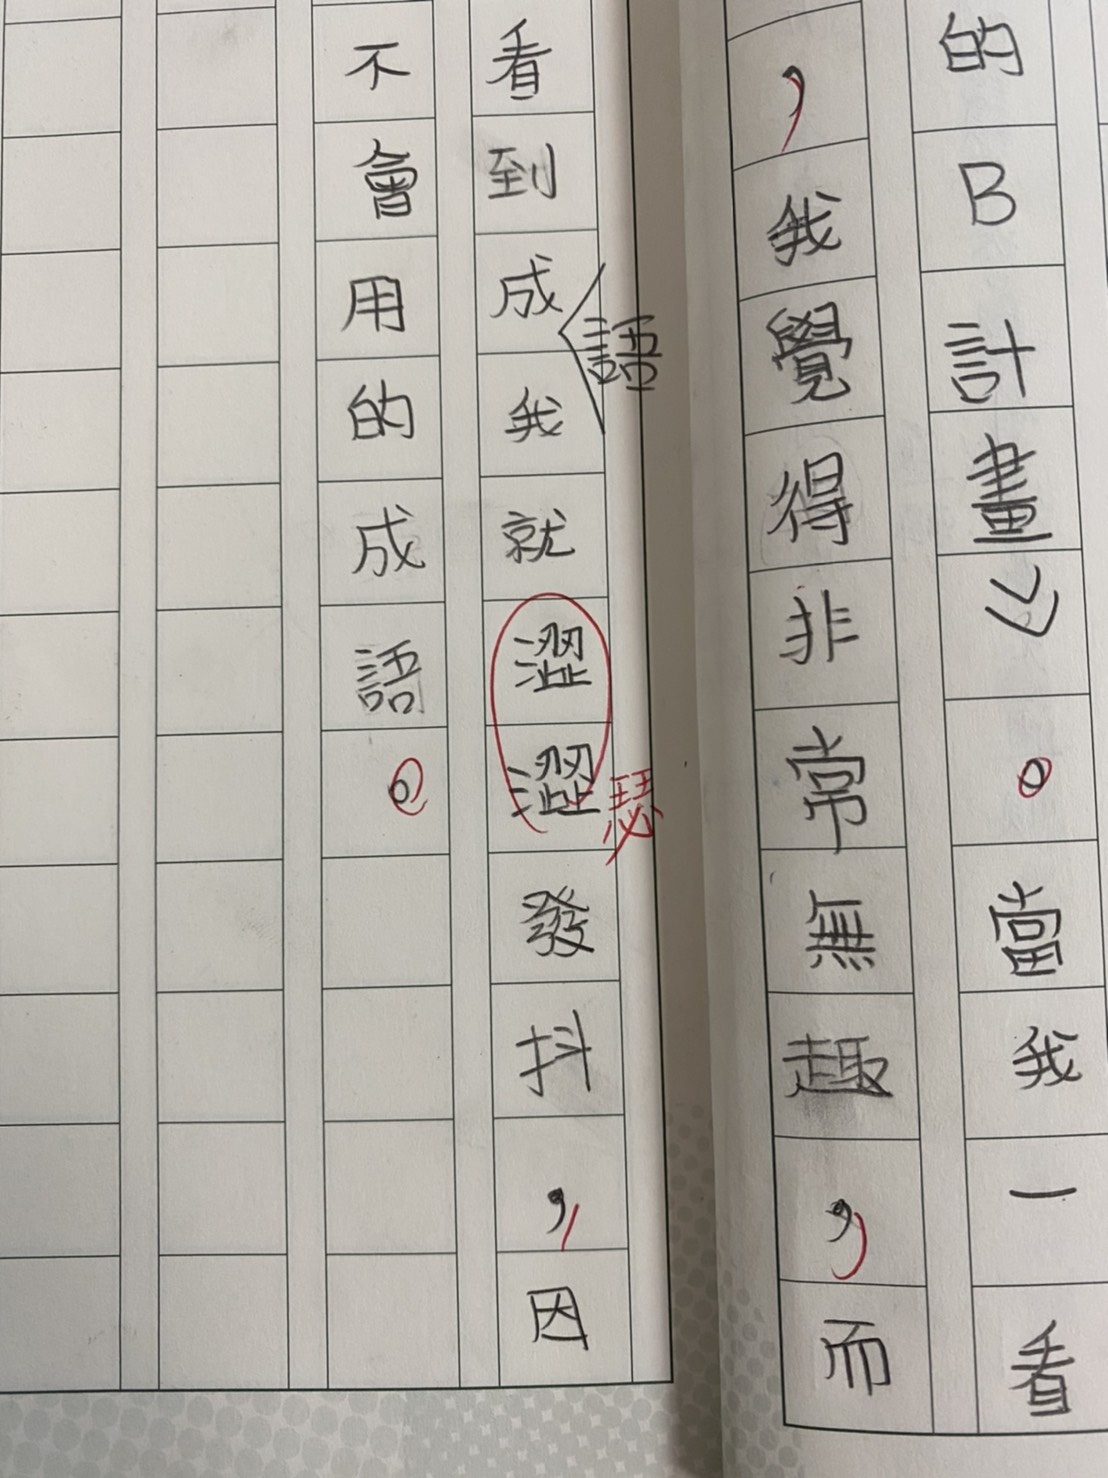 的B計畫》。當我一看
，我覺得非常無趣，而
看到成語我就澀澀發抖，因
瑟
不會用的成語。